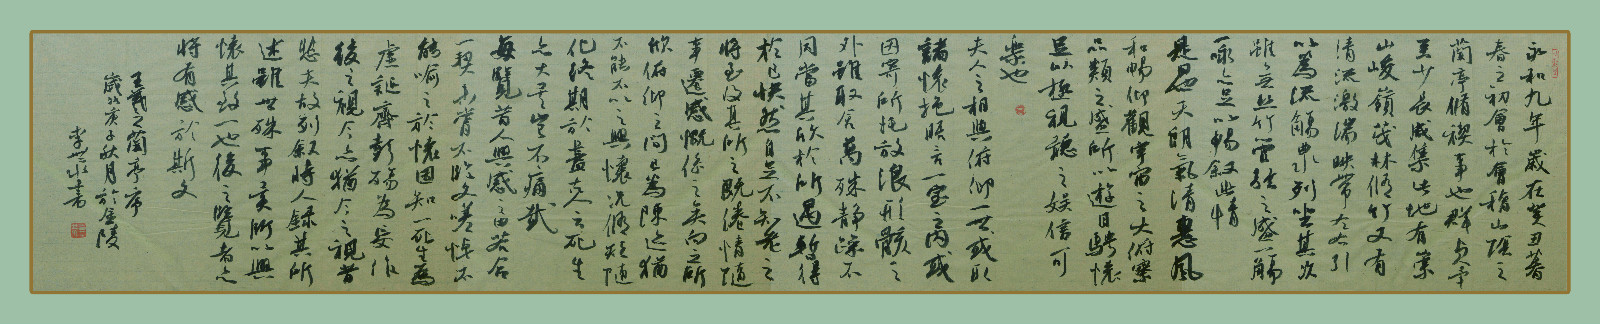 永和九年歲在癸丑暮
春之初會於會稽山陰之
蘭亭脩禊事也群賢畢
至少長咸集此地有崇
山峻嶺茂林脩竹又有
清流激湍映帶左右引
以為流觴曲水列坐其次
雖無絲竹管弦之盛一觴
一詠亦足以暢敘幽情
是日也天朗氣清惠風
和暢仰觀宇宙之大俯察
品類之盛所以遊目騁懷
足以極視聽之娛信可
樂也
夫人之相與俯仰一世或取
諸懷抱晤言一室之內或
因寄所托放浪形骸之
外雖取舍萬殊靜躁不
同當其欣於所遇暫得
於己快然自足不知老之
將至及其所之既倦情隨
事遷感慨係之矣向之所
欣俯仰之間已為陳迹猶
不能不以之興懷況脩短隨
化終期於盡古人云死生
亦大矣豈不痛哉
每覽昔人興感之由若合
一契未嘗不臨文嗟悼不
能喻之於懷固知一死生為
虛誕齊彭殤為妄作
後之視今亦猶今之視昔
悲夫故列敘時人錄其所
述雖世殊事異所以興
懷其致一也後之覽者亦
將有感於斯文
王羲之蘭亭序
歲次庚子秋月於金陵
書